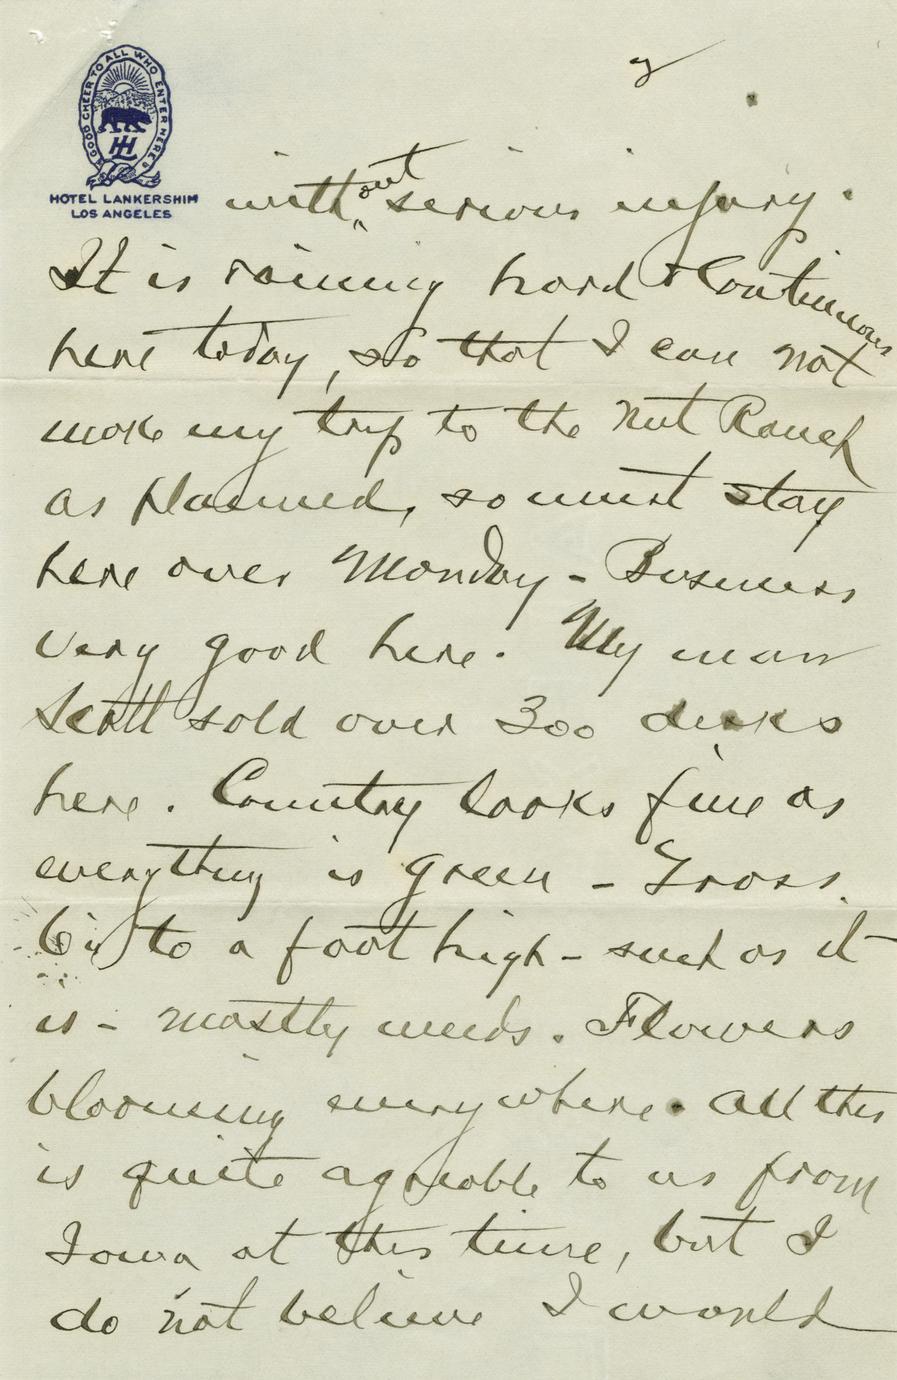 GOOD CHEER TO ALL WHO ENTER HERE
HL
HOTEL LANKERSHIM
LOS ANGELES
without serious injury.
It is raining hard & Continuous
here today, so that I can not
make my trip to the Nut Ranch
as planned, so must stay
here over Monday - Business
very good here. My man
Scott sold over 300 disks
here. Country looks fine as
everything is green - Grass
6 in to a foot high - such as it
is - mostly weeds. Flowers
blooming everywhere. All this
is quite agreable to us from
Iowa at this time, but I
do not believe I would